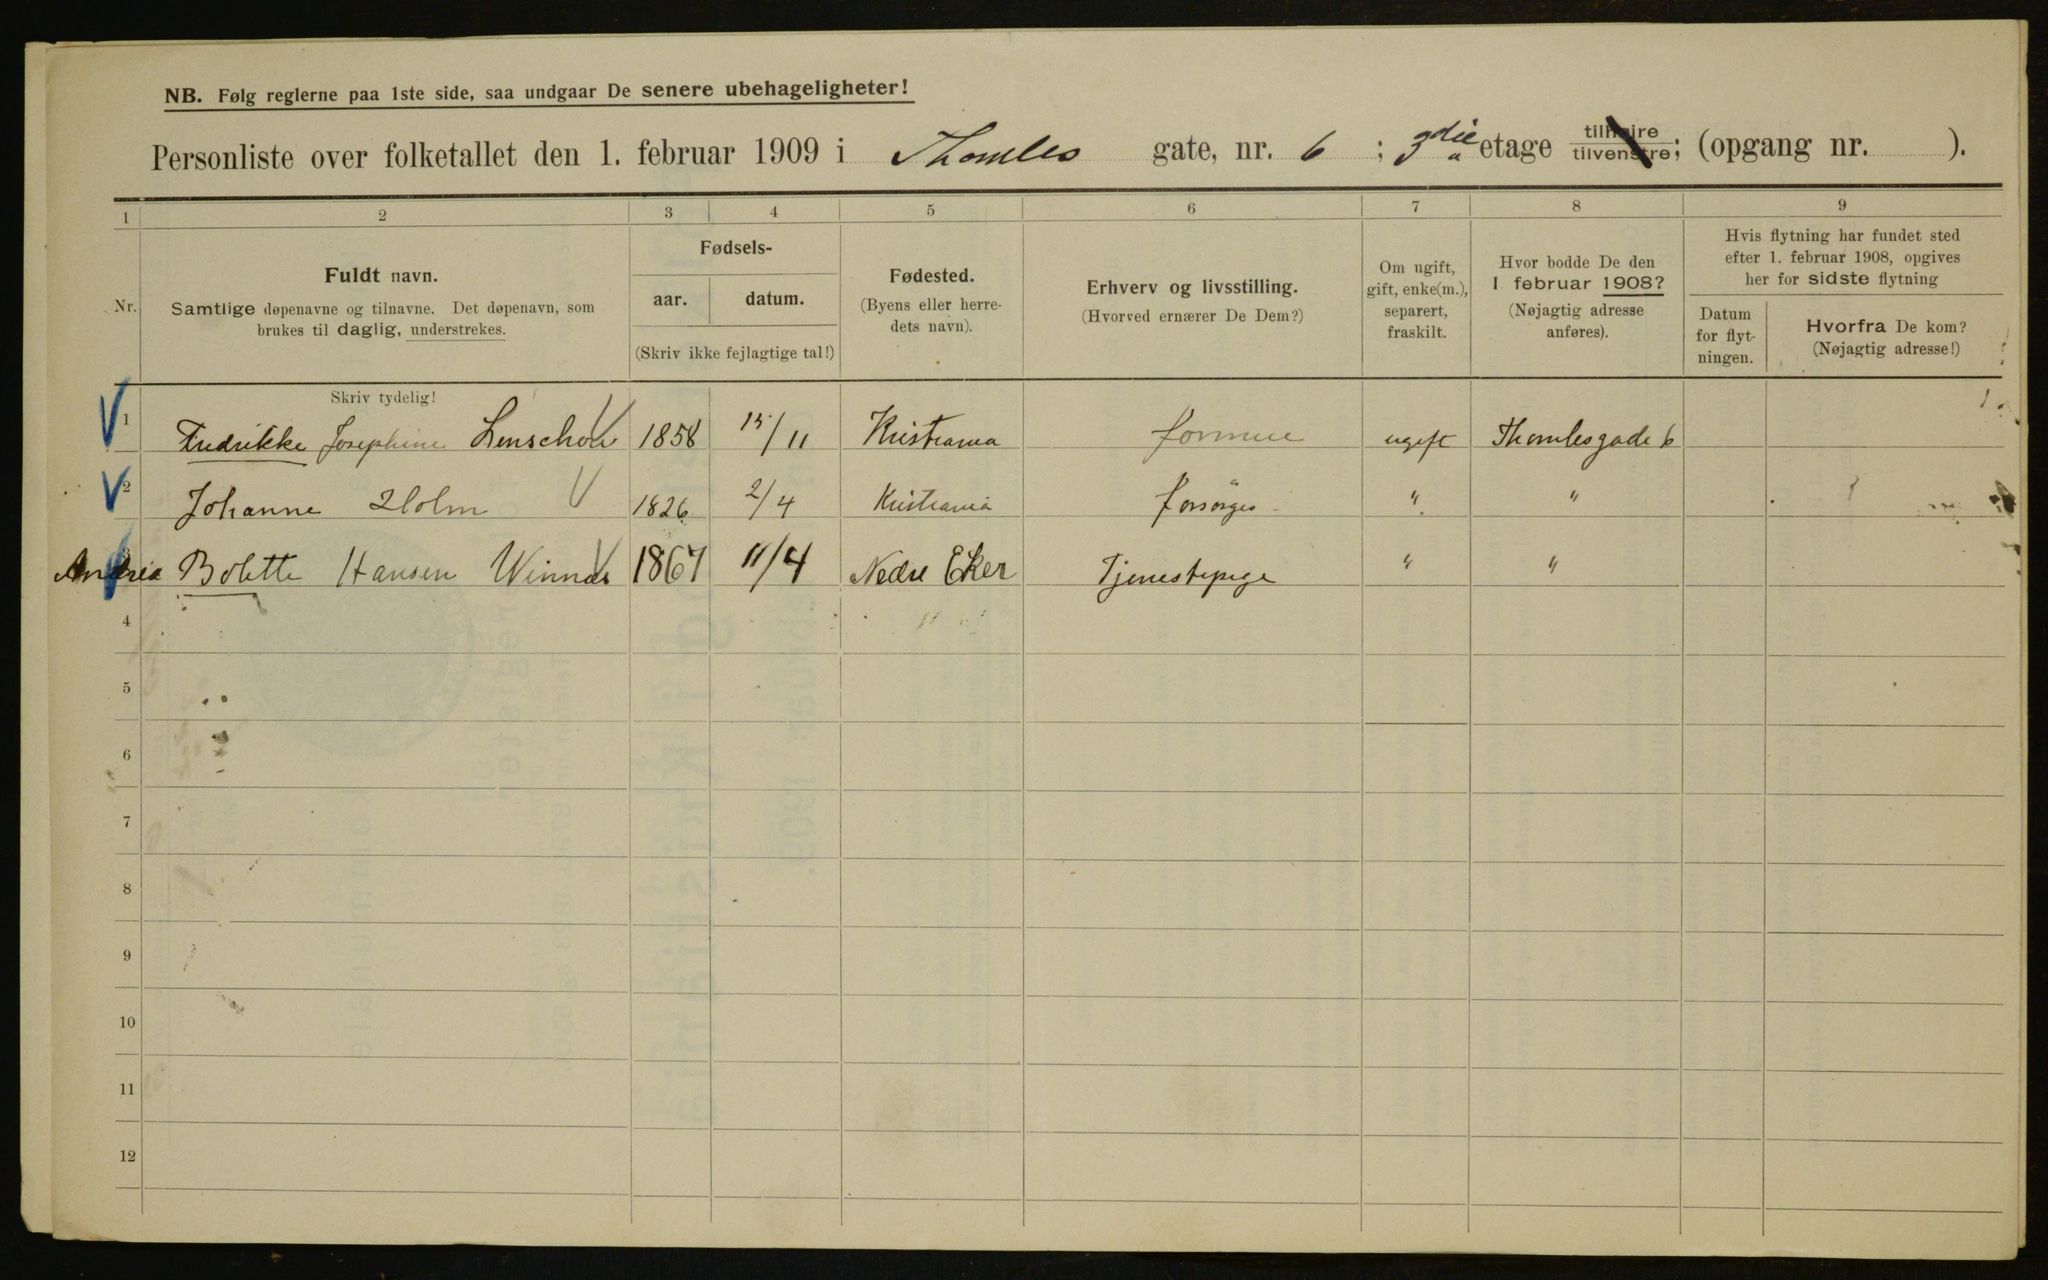 NB. Følg reglerne paa 1ste side, saa undgaar De senere ubehageligheter!
Personliste over folketallet den 1. februar 1909 i Thomles gate, nr. 6 ; 3die etage tilhøire tilvenstre; (opgang nr. ).
1 2 3 4 5 6 7 8 9
Nr.
Fuldt navn.
Samtlige døpenavne og tilnavne. Det døpenavn, som
brukes til daglig, understrekes.
Fødsels-
aar. datum.
(Skriv ikke fejlagtige tal!)
Fødested.
(Byens eller herre-
dets navn).
Erhverv og livsstilling.
(Hvorved ernærer De Dem?)
Om ugift,
gift, enke(m.),
separert,
fraskilt.
Hvor bodde De den
1 februar 1908?
(Nøjagtig adresse
anføres).
Hvis flytning har fundet sted
efter 1. februar 1908, opgives
her for sidste flytning
Datum
for flyt-
ningen.
Hvorfra De kom?
(Nøjagtig adresse!)
Skriv tydelig!
1 Fredrikke Josephine Lenschow 1858 /11 Kristiania formue ugift Thomlesgade 6
2 Johanne Holm 1826 2/4 Kristiania forsørges " "
3 Andrea Bolette Hansen Winnæs 1867 11/4 Nedre Eker Tjenestepige " "
4
5
6
7
8
9
10
11
12